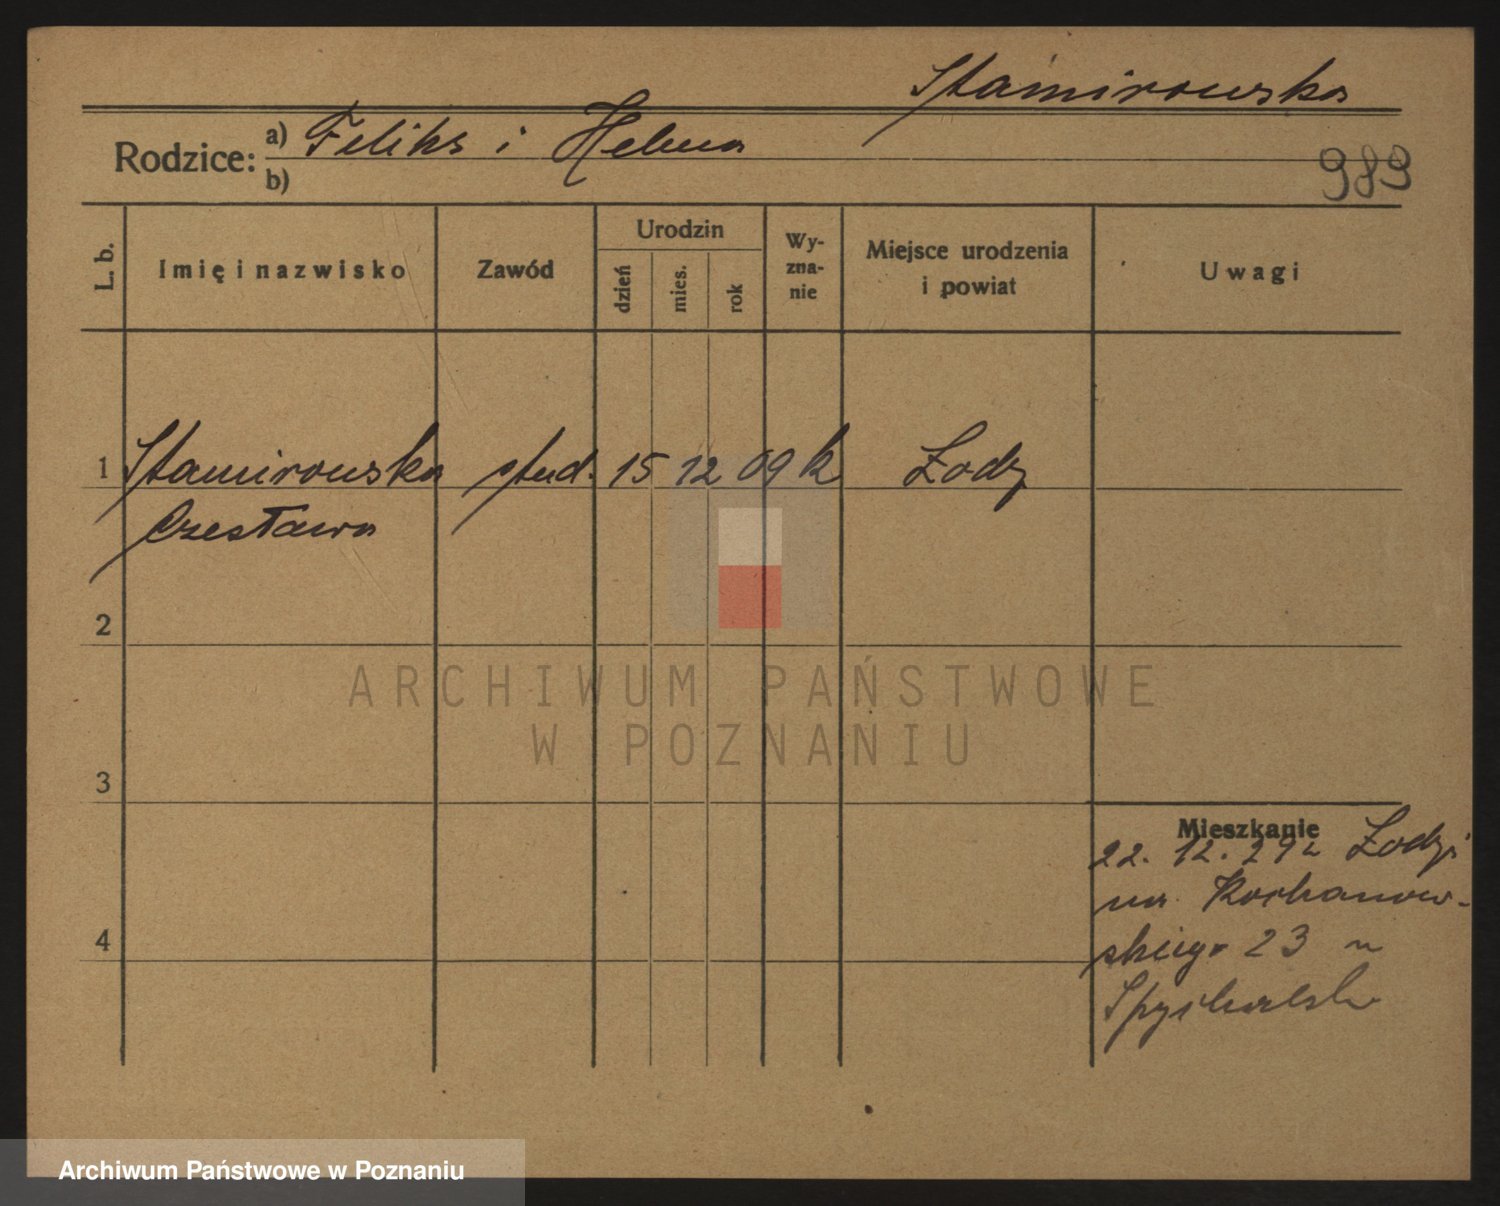 Stamirowska
Rodzice: a) Feliks i Helena
b)
989
L. b.
Imię i nazwisko
Zawód
Urodzin
dzień
mies.
rok
Wy-
zna-
nie
Miejsce urodzenia
i powiat
Uwagi
1 Stamirowska stud. 15 12 09 k Łodz
Czesława
2
3
4
Mieszkanie
22. 12. 29 z Łodzi
na Kochanow-
skiego 23 u
ARCHIWUM PAŃSTWOWE
W POZNANIU
Archiwum Państwowe w Poznaniu